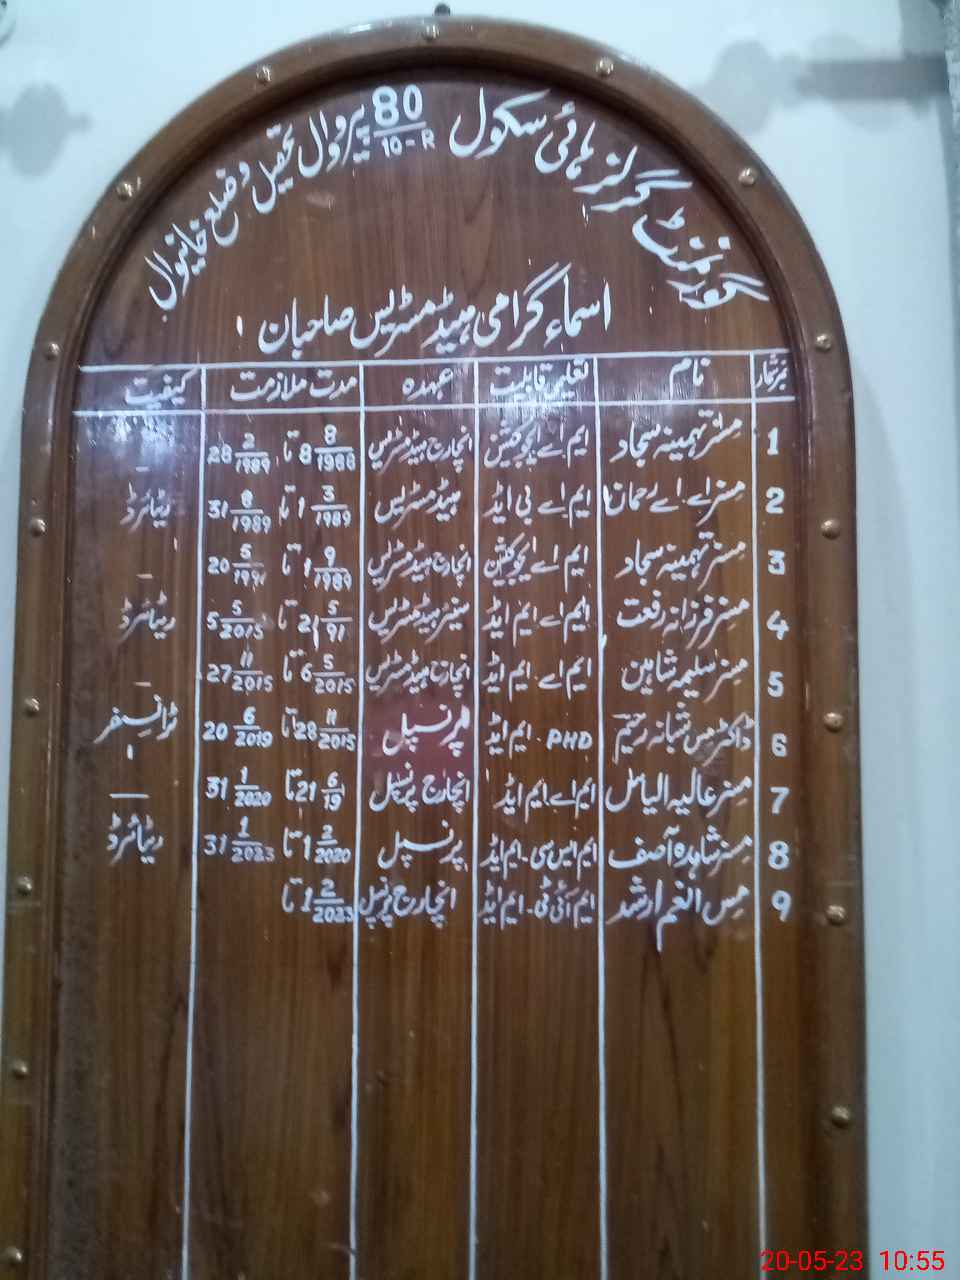 گورنمنٹ گرلز ہائی سکول 80/10-R پیرووال تحصیل و ضلع خانیوال
اسماء گرامی ہیڈمسٹریس صاحبان
نمبر شمار نام تعلیمی قابلیت عہدہ مدت ملازمت کیفیت
1 مسز تہمینہ سجاد ایم اے ایجوکیشن انچارج ہیڈمسٹریس 8 8/1988 تا 28 2/1989 _
2 مسز اے اے رحمان ایم اے بی ایڈ ہیڈمسٹریس 1 3/1989 تا 31 8/1989 ریٹائرڈ
3 مسز تہمینہ سجاد ایم اے ایجوکیشن انچارج ہیڈمسٹریس 1 9/1989 تا 20 5/1991 _
4 مسز فرزانہ رفعت ایم اے ایم ایڈ سینئر ہیڈمسٹریس 21 5/91 تا 5 5/2015 ریٹائرڈ
5 مسز سلیمہ شاہین ایم اے ایم ایڈ انچارج ہیڈمسٹریس 6 5/2015 تا 27 11/2015 _
6 ڈاکٹر مس شبانہ رحیم PHD - ایم ایڈ پرنسپل 28 11/2015 تا 20 6/2019 ٹرانسفر
7 مسز عالیہ الیاس ایم اے ایم ایڈ انچارج پرنسپل 21 6/19 تا 31 1/2020 _
8 مسز شاہدہ آصف ایم ایس سی - ایم ایڈ پرنسپل 1 2/2020 تا 31 1/2023 ریٹائرڈ
9 مس انعم ارشد ایم آئی ٹی - ایم ایڈ انچارج پرنسپل 1 2/2023 تا
20-05-23 10:55